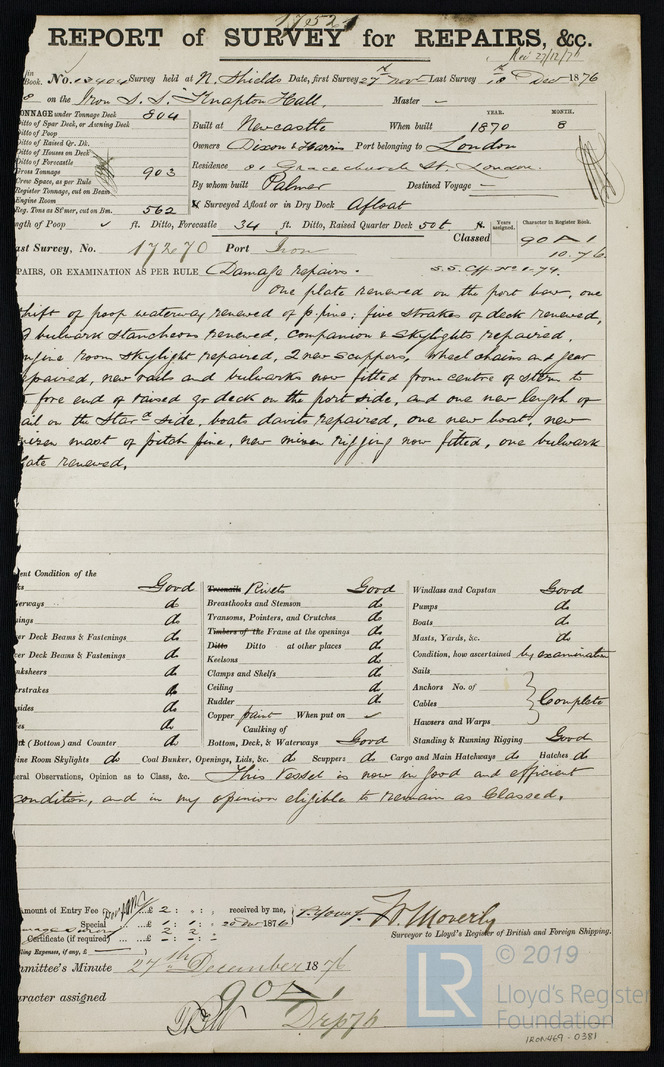 17521
REPORT of SURVEY for REPAIRS, &c.
Rec 27/12/76
in Book. No. 13404 Survey held at N. Shields Date, first Survey 27th Nov Last Survey 18th Dec 1876
8 on the Iron S. S. "Knapton Hall. Master —
ONNAGE under Tonnage Deck 804
Ditto of Spar Deck, or Awning Deck
Ditto of Poop
Ditto of Raised Qr. Dk.
Ditto of Houses on Deck
Ditto of Forecastle
Gross Tonnage 903
Crew Space, as per Rule
Register Tonnage, cut on Beam
Engine Room
Reg. Tons as St'mer, cut on Bm. 562
YEAR. MONTH.
Built at Newcastle When built 1870 8
Owners Dixon & Harris Port belonging to London
Residence 81 Gracechurch St. London.
By whom built Palmer Destined Voyage —
Surveyed Afloat or in Dry Dock Afloat
ngth of Poop ✓ ft. Ditto, Forecastle 34 ft. Ditto, Raised Quarter Deck 50 ft.
Years assigned. Character in Register Book.
Classed 90 A 1
10.76
ast Survey, No. 17270 Port Iron
S.S. Cff No 1-74.
PAIRS, OR EXAMINATION AS PER RULE Damage repairs.
One plate renewed on the port bow, one
hift of poop waterway renewed of p. pine; five strakes of deck renewed,
bulwark stancheons renewed, companion & skylights repaired,
ngine room skylight repaired, 2 new scuppers, wheel chains and gear
epaired, new rails and bulwarks now fitted from centre of stern to
fore end of raised qr deck on the port side, and one new length of
ail on the Stard side, boats davits repaired, one new boat, new
izen mast of pitch pine, new mizen rigging now fitted, one bulwark
late renewed.
ent Condition of the
ks Good
erways do
ings do
er Deck Beams & Fastenings do
er Deck Beams & Fastenings do
nksheers do
erstrakes do
sides do
es do
(Bottom) and Counter do
Treenails Rivets Good
Breasthooks and Stemson do
Transoms, Pointers, and Crutches do
Timbers of the Frame at the openings do
Ditto Ditto at other places do
Keelsons do
Clamps and Shelfs do
Ceiling do
Rudder do
Copper paint When put on ✓
Caulking of
Bottom, Deck, & Waterways Good
Windlass and Capstan Good
Pumps do
Boats do
Masts, Yards, &c. do
Condition, how ascertained by examination
Sails
Anchors No. of
Cables Complete
Hawsers and Warps
Standing & Running Rigging Good
ine Room Skylights do Coal Bunker, Openings, Lids, &c. do Scuppers do Cargo and Main Hatchways do Hatches do
eral Observations, Opinion as to Class, &c. This Vessel is now in good and efficient
condition, and in my opinion eligible to remain as Classed.
Amount of Entry Fee ...£ 2 : " :
Special ...£ 1 : 1 :
received by me,
20 Dec 1876
Certificate (if required) ... £ 2 : 2 :
ling Expenses, if any, £
P. Young. W. Moverly
Surveyor to Lloyd's Register of British and Foreign Shipping.
mmittee's Minute 27th December 1876
aracter assigned 90 A 1
© 2019
LR
Lloyd's Register
Foundation
IRON469-0381